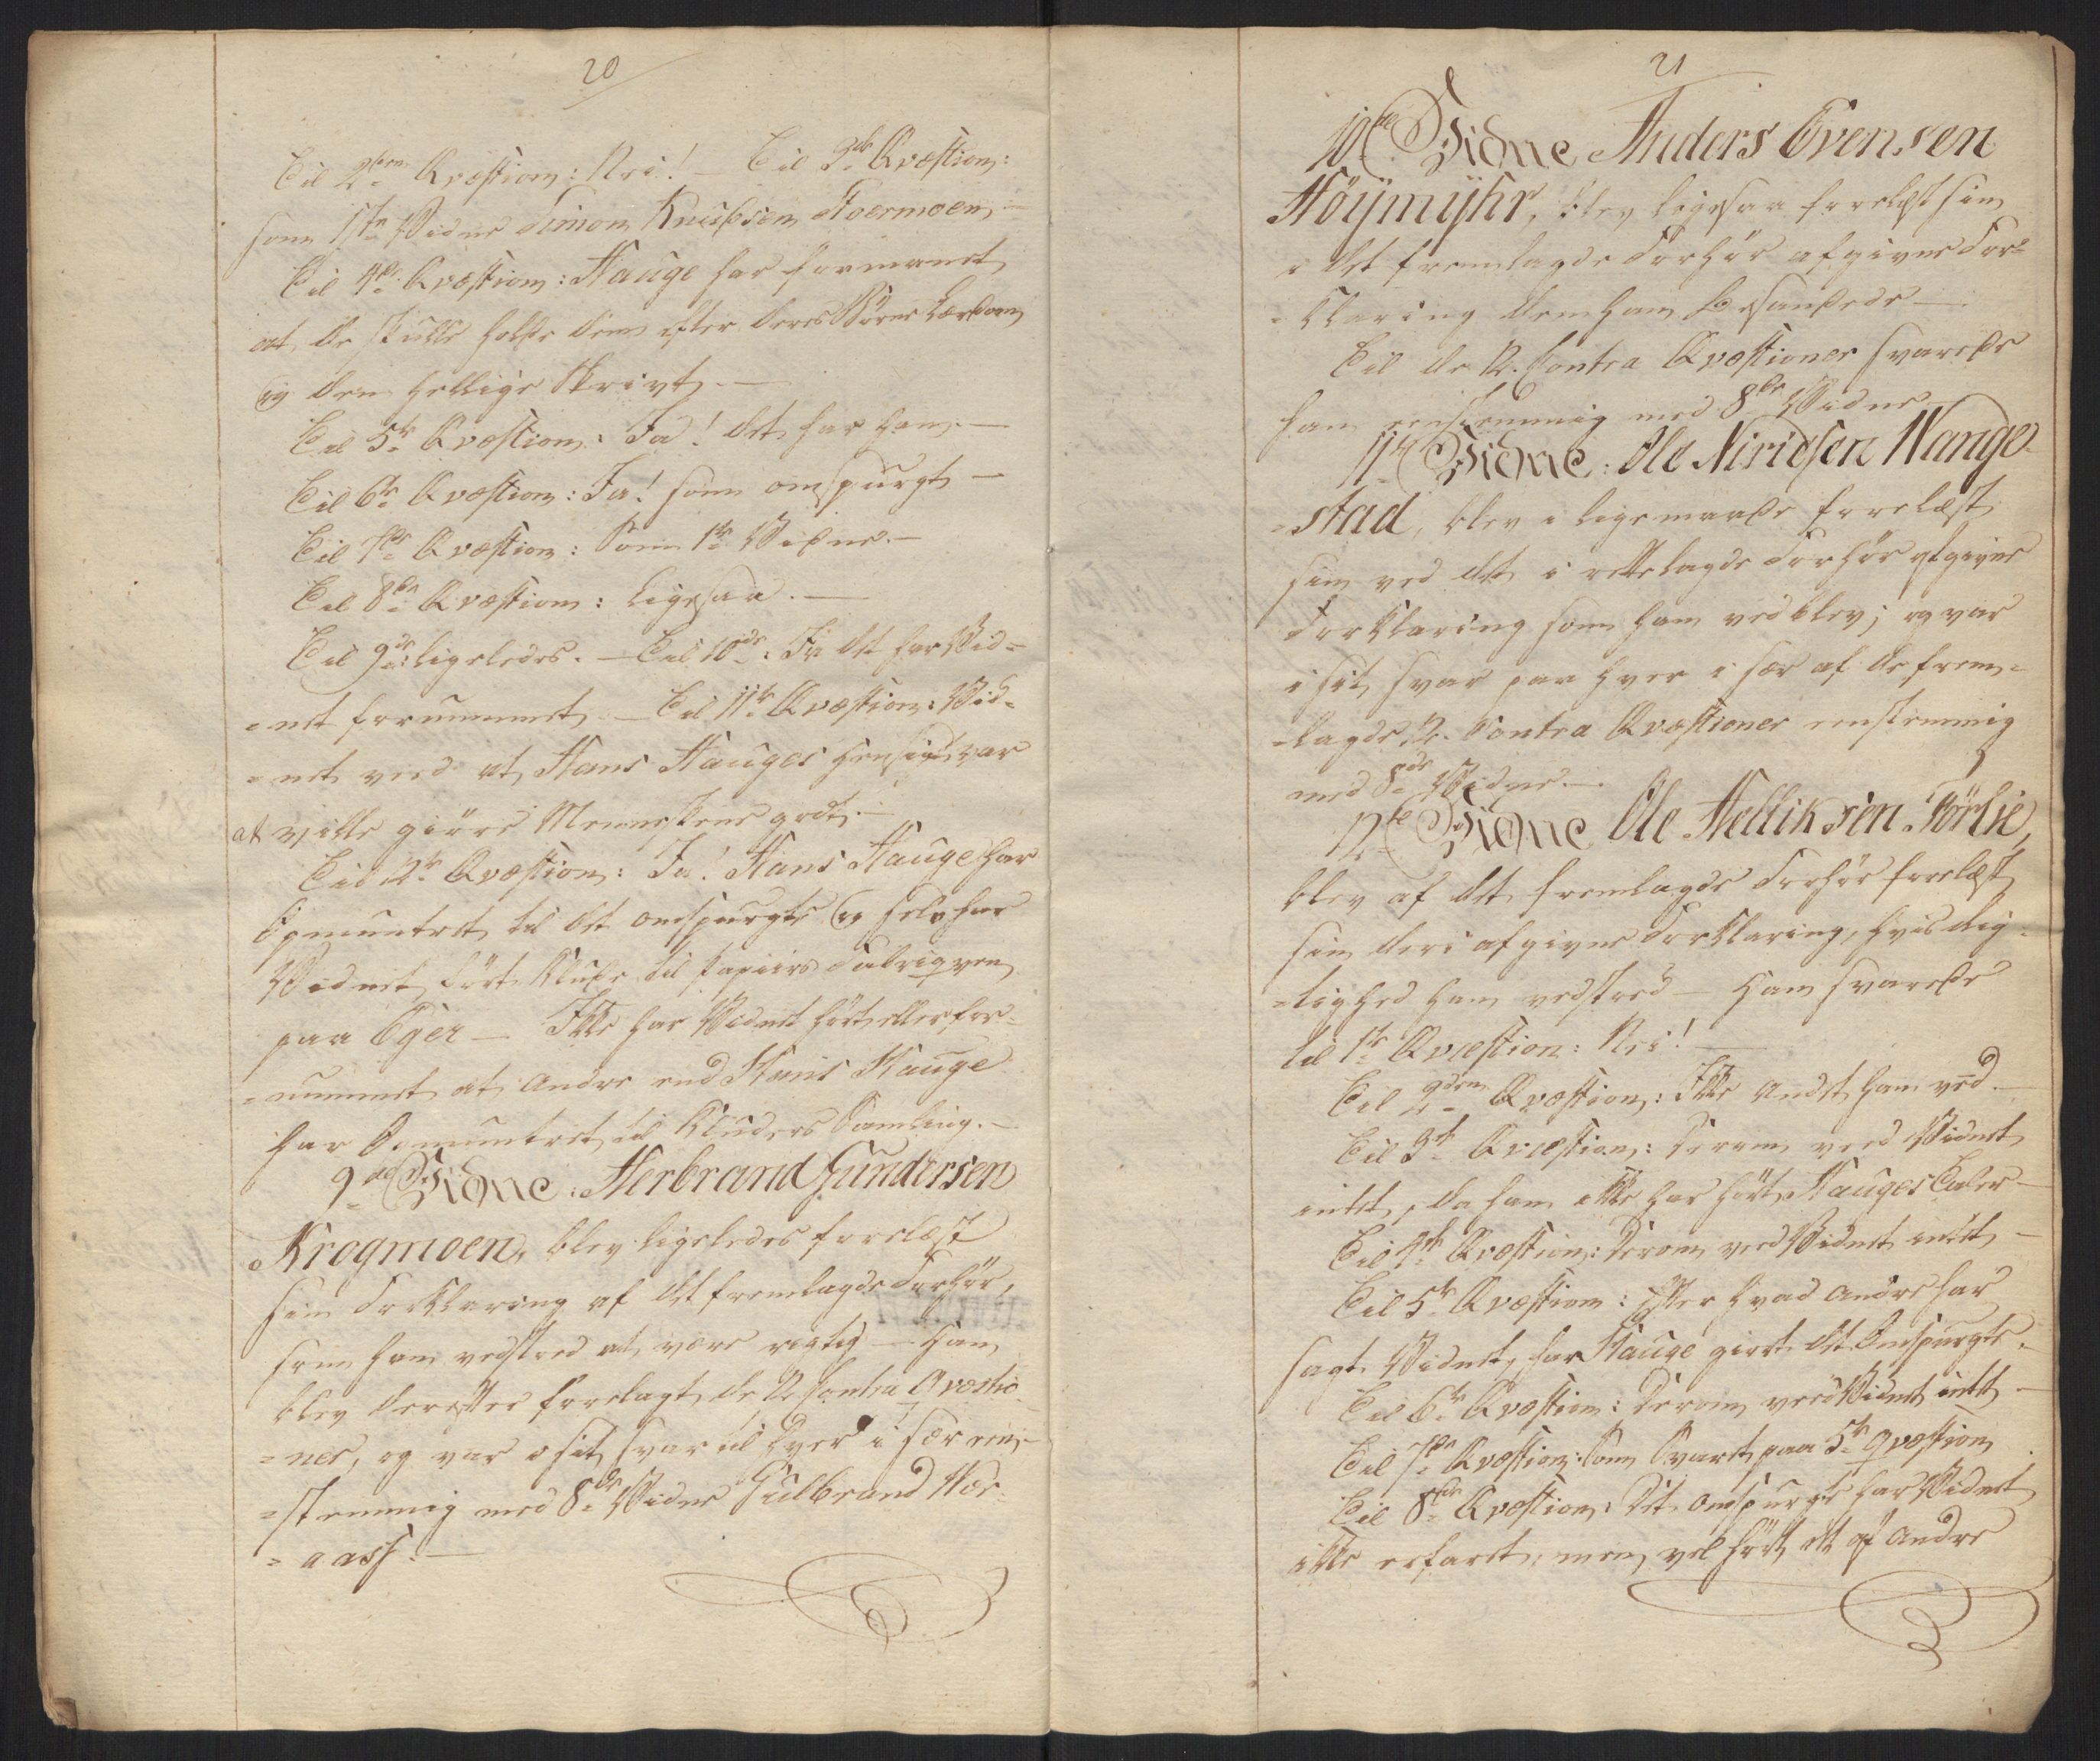 20
Til 2den Qvæstion: Nei! — Til 3de Qvæstion:
som 1ste Vidne Simon Knudsen Foermoen —
Til 4de Qvæstion: Hauge har formanet
at de skulle holde dem efter deres Børne Lærdom
og den hellige Skrivt. —
Til 5te Qvæstion: Ja! det har han. —
Til 6te Qvæstion: Ja! som omspurgt —
Til 7de Qvæstion: Som 1te Vidne. —
Til 8de Qvæstion: Ligesaa. —
Til 9de: ligeledes. — Til 10de: Ja det har Vid=
=net fornummet. — Til 11te Qvæstion: Vid=
=net veed at Hans Hauges Hensigt var
at ville giöre Menneskene godt. —
Til 12te Qvæstion: Ja! Hans Hauge har
Opmuntret til det omspurgte og selv har
Vidnet fört Klude til Papiirs Fabriqven
paa Eger — Ikke har Vidnet hört eller for=
=nummet at andre end Hans Hauge
har Opmuntret til Kluders Samling. —
9de Vidne: Herbrand Gundersen
Krogmoen, blev ligeledes forelæst
sin Forklaring af det fremlagde Forhör,
som han vedstoed at være rigtig — Han
blev derefter forelagt de 12 Contra Qvæstio
=ner, og var i sit svar til hver i sær een=
=stemmig med 8de Vidne Gulbrand Moe=
=aass. —
21
10de Vidne Anders Evensen
Höÿmÿhr, blev ligesaa forelæst sin
i det fremlagde Forhör afgivne For=
=klaring dem han besandede —
Til de 12. Contra Qvæstioner svarede
han eenstemmig med 8de Vidne —
11te Vidne: Ole Niridsen Wange
=stad, blev i ligemaade forelæst
sin ved det i rettelagde Forhör afgivne
Forklaring som han vedblev; og var
i sit svar paa hver i sær af de frem=
=lagde 12. Contra Qvæstioner eenstemmig
med 8de Vidne. —
12te Vidne Ole Helliksen Förlie,
blev af det fremlagde Forhör forelæst
sin deri afgivne Forklaring, hvis Rig=
=tighed han vedstoed — Han svarede
til 1te Qvæstion: Nei! —
Til 2den Qvæstion: Ikke andet han veed. —
Til 3de Qvæstion: Derom veed Vidnet
intet, da han ikke har hört Hauges Taler —
Til 4de Qvæstion: Derom veed Vidnet intet —
Til 5te Qvæstion: Efter hvad andre har
sagt Vidnet, har Hauge giort det Omspurgte.
Til 6te Qvæstion: Derom veed Vidnet intet —
Til 7de Qvæstion: Som Svaret paa 5te Qvæstion
Til 8de Qvæstion: Det omspurgte har Vidnet
ikke erfaret, men vel hört det af andre